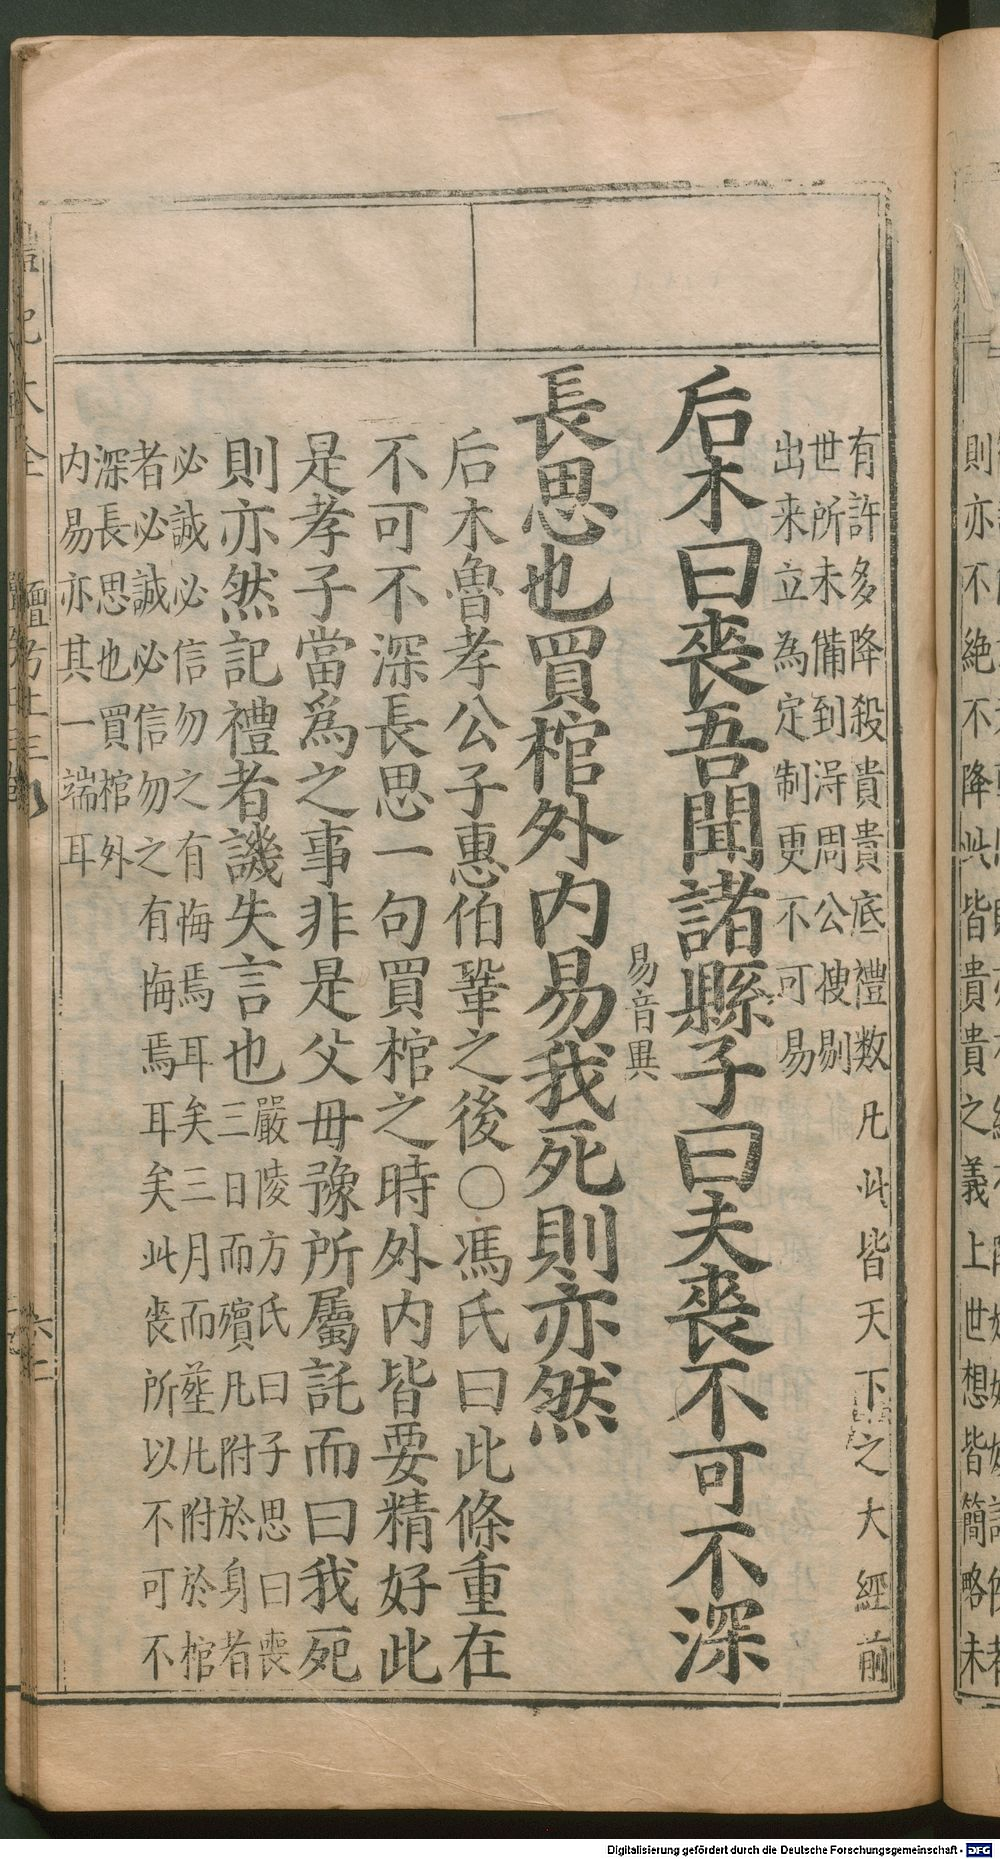 則亦不絶不降此皆貴貴之義上世想皆簡略未
有許多降殺貴貴底禮数凡此皆天下之大經前
世所未備到淂周公搜剔
出来立為定制更不可易
后木曰丧吾聞諸縣子曰夫丧不可不深
易音異
長思也買棺外内易我死則亦然
后木魯孝公子惠伯鞏之後○馮氏曰此條重在
不可不深長思一句買棺之時外内皆要精好此
是孝子當爲之事非是父毋豫所屬託而曰我死
則亦然記禮者譏失言也嚴陵方氏曰子思曰喪
三日而殯凡附於身者
必誠必信勿之有悔焉耳矣三月而塟凡附於棺
者必誠必信勿之有悔焉耳矣此丧所以不可不
深長思也買棺外
内易亦其一端耳
Digitalisierung gefördert durch die Deutsche Forschungsgemeinschaft - DFG